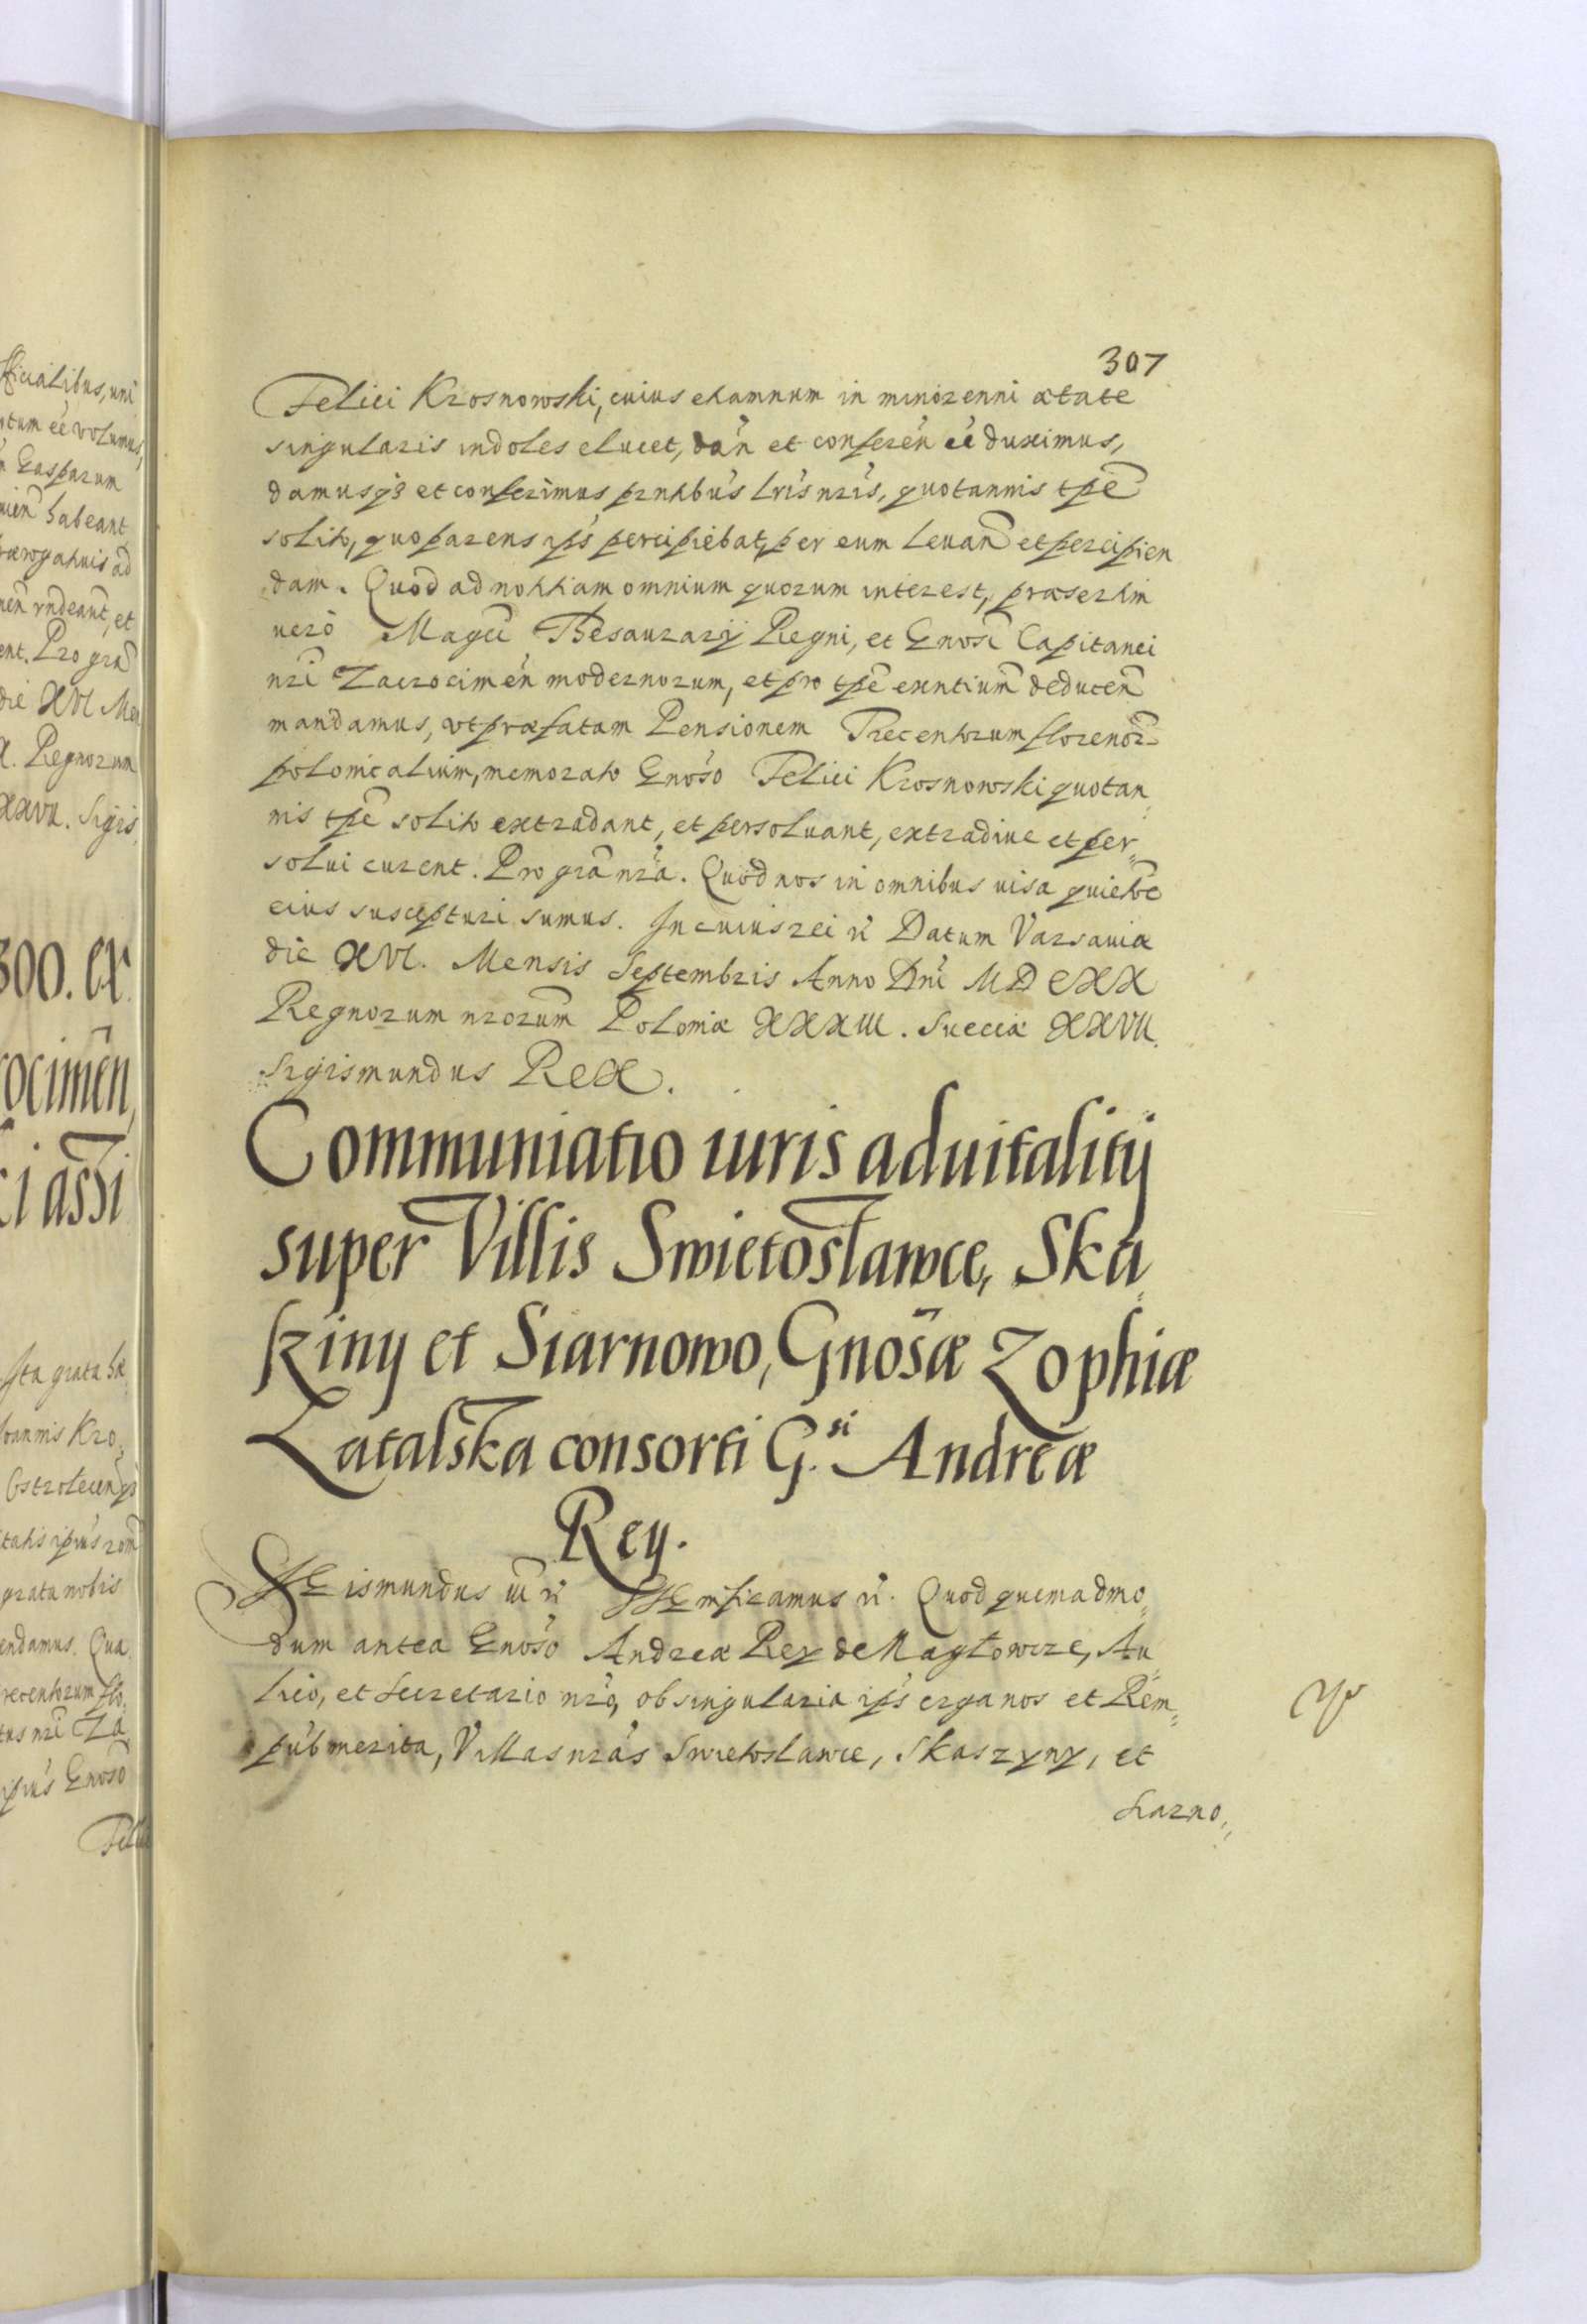 307
Felici Krosnowski, cuius etiamnum in minorenni ætate
singularis indoles elucet, dan̄ et conferen̄ eē duximus,
damusq3 et conferimus prntibus lris nris, quotannis tpe
solito, quo parens ips percipiebat, per eum levan̄ et percipien
dam. Quod ad notitiam omnium quorum interest, præsertim
uero Magci Thesaurarij Regni, et Gnosi Capitanei
nri Zacrocimen̄ modernorum, et pro tpe exntium deducen̄
mandamus, vt præfatam Pensionem Trecentorum florenor
polonicalium, memorato Gnoso Felici Krosnowski quotan„
nis tpe solito extradant, et persoluant, extradiue et per„
solui curent. Pro gra nra. Quod nos in omnibus
eius suscepturi sumus. In cuius rei Datum Varsauiæ
die XVI. Mensis Septembris Anno Dni MDCXX
Regnorum nrorum Poloniæ XXXIII. Sueciæ XXVII.
Sigismundus Rex.
Communiatio iuris aduitalitij
super Villis Swietoslawce, Ska„
sziny et Siarnowo, Gnosæ Zophiæ
Latalska consorti G.si Andreæ
Rey.
Sigismundus III Significamus Quod quemadmo„
dum antea Gnoso Andreæ Rey de Nagłowice, Au„
lico, et Secretario nro, ob singularia ips erga nos et Rem„
pub merita, Villas nras Swietoslawce, Skaszyny, et
Siarno„
fficialibus, uni
ntum eē volumus,
Gasparum
habeant
prærogatiuis ad
rndeant, et
ent. Pro gra
die XVI Men
X. Regnorum
XXVII. Sigis„
300. ex
rocimen,
ci assi
Ita grata hæ
Ioannis Kro„
Ostrolecen
itatis ipius
grata nobis
endamus. Qua
recentorum flo„
tus nri Za„
ipius Gnoso
Felici